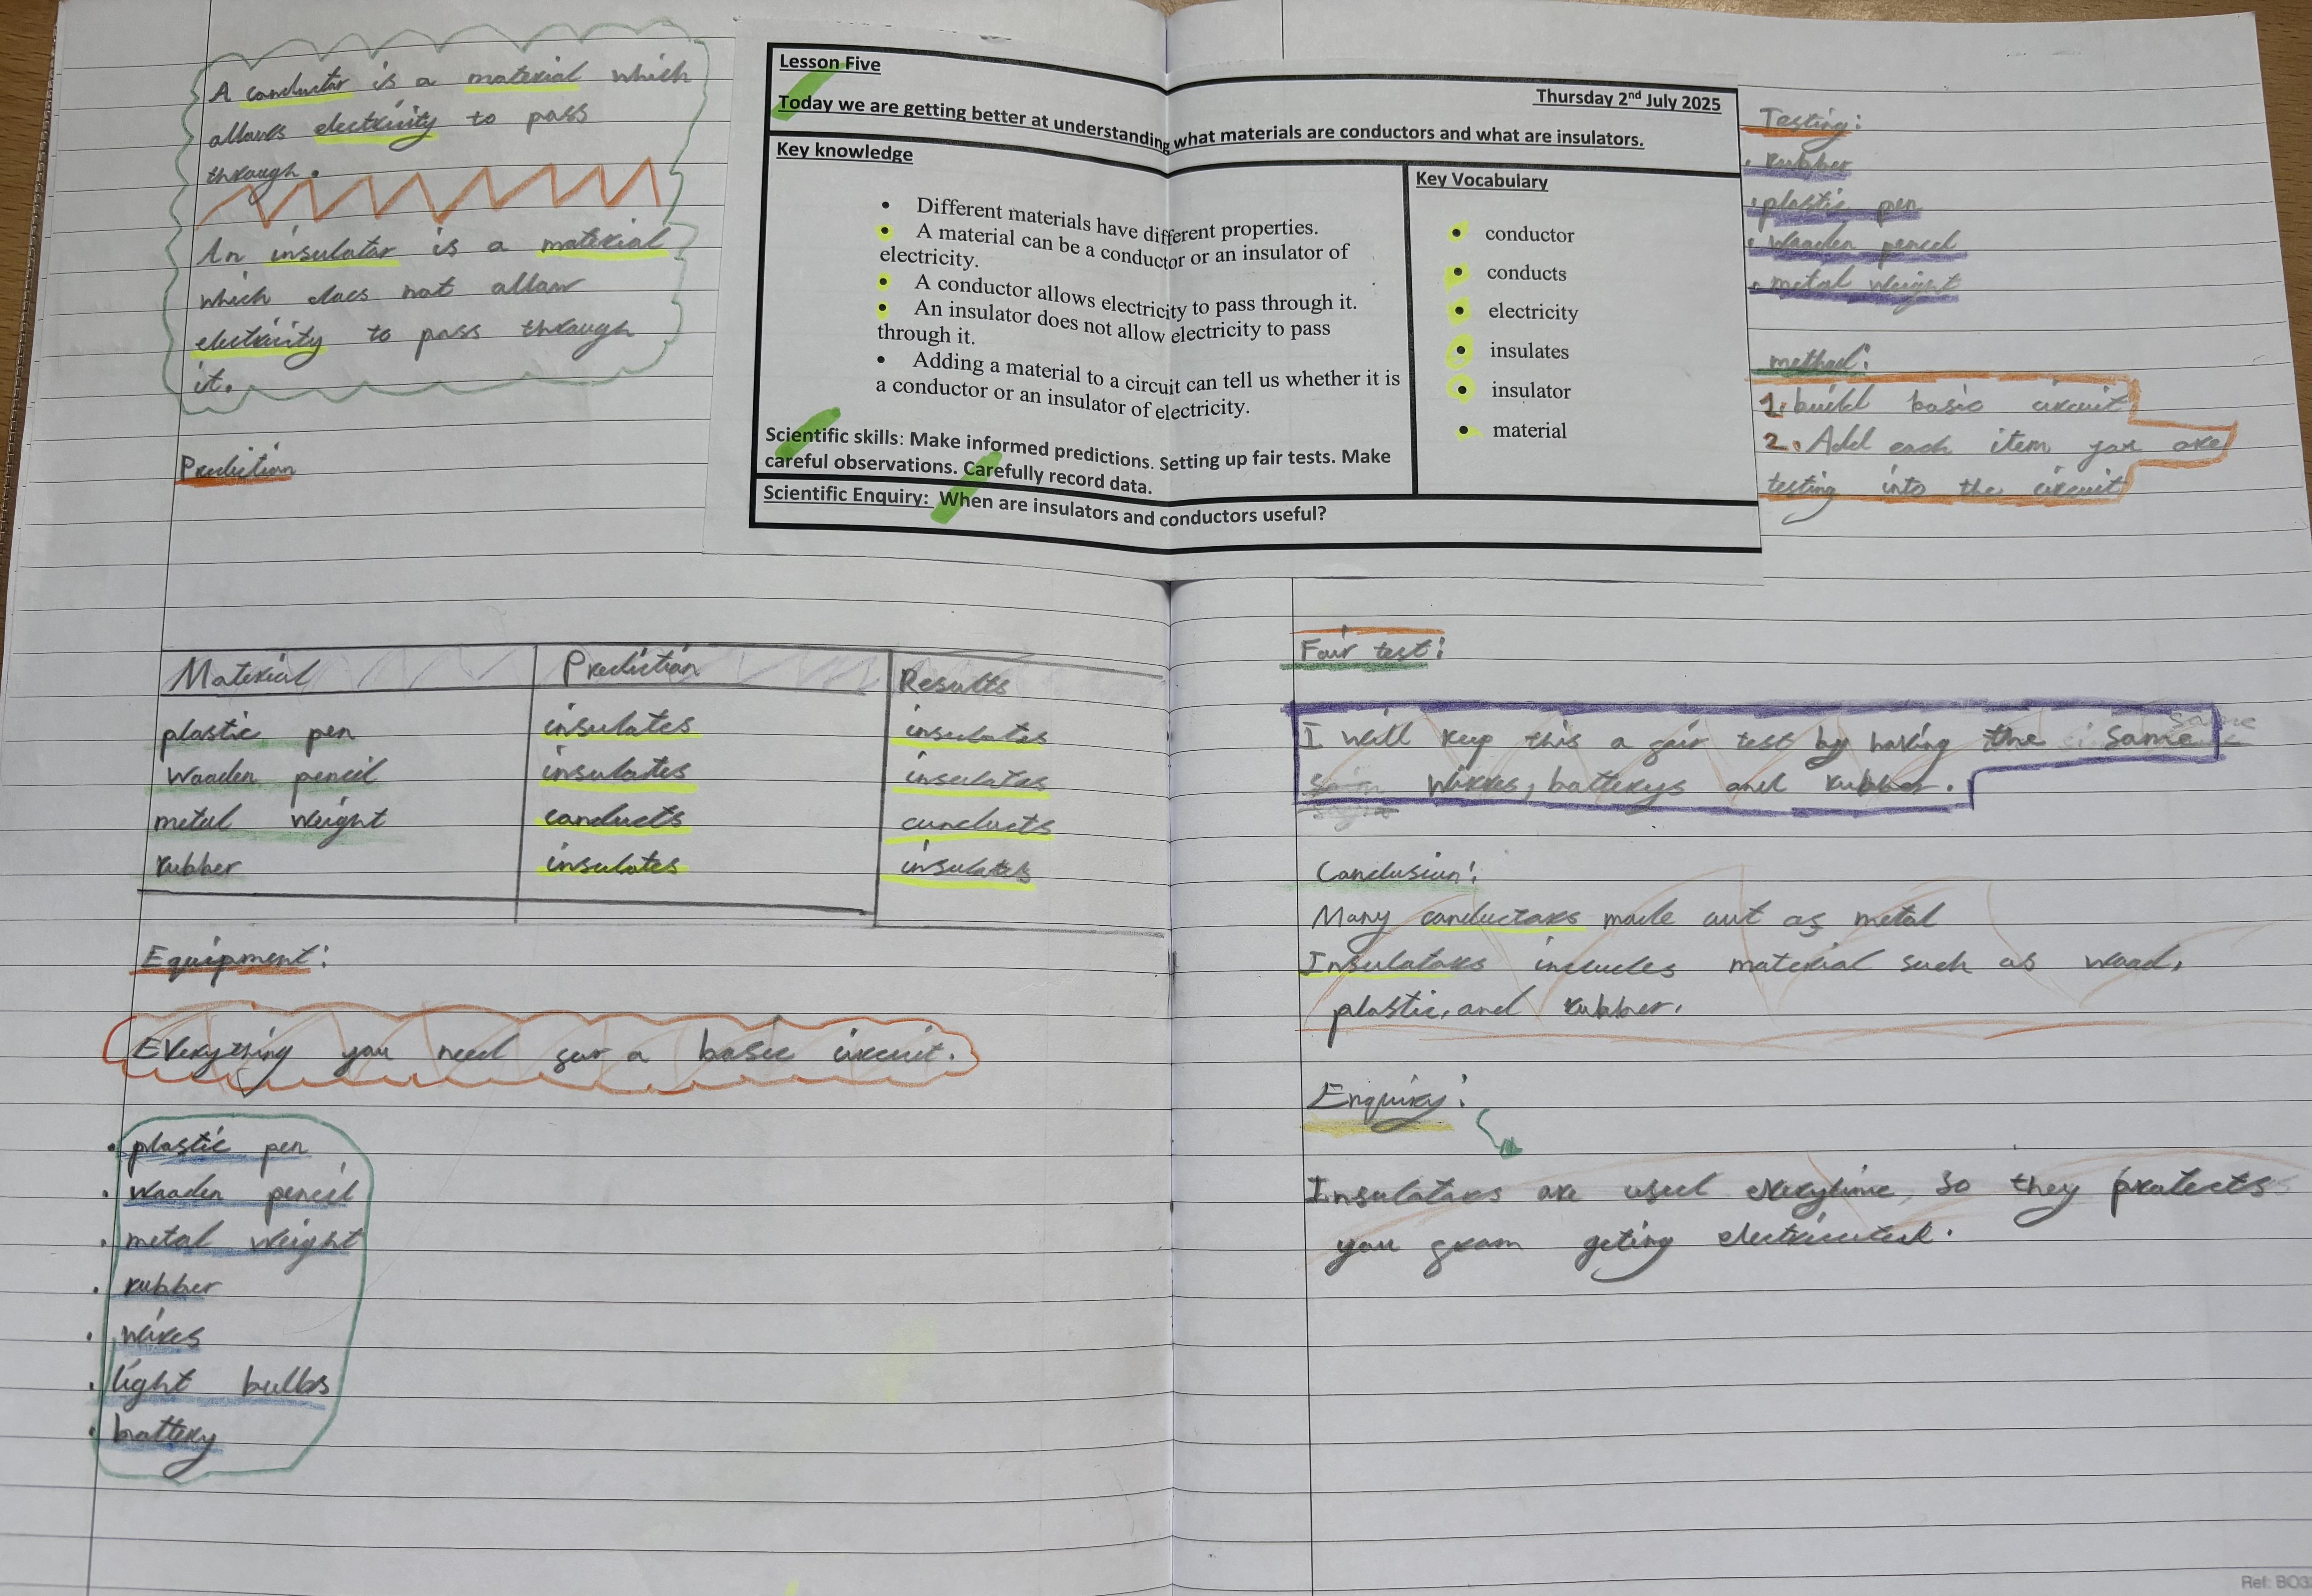 A conductor is a material which
allows electricity to pass
through.
An insulator is a material
which does not allow
electricity to pass through
it.
Prediction
Lesson Five
Thursday 2nd July 2025
Today we are getting better at understanding what materials are conductors and what are insulators.
Key knowledge
• Different materials have different properties.
• A material can be a conductor or an insulator of
electricity.
• A conductor allows electricity to pass through it.
• An insulator does not allow electricity to pass
through it.
• Adding a material to a circuit can tell us whether it is
a conductor or an insulator of electricity.
Scientific skills: Make informed predictions. Setting up fair tests. Make
careful observations. Carefully record data.
Scientific Enquiry: When are insulators and conductors useful?
Key Vocabulary
• conductor
• conducts
• electricity
• insulates
• insulator
• material
Testing:
• rubber
• plastic pen
• wooden pencil
• metal weight
method:
1. build basic circuit
2. Add each item yor are
testing into the circuit
Material Prediction Results
plastic pen insulates insulates
wooden pencil insulates insulates
metal weight conducts cunducts
rubber insulates insulates
Equipment:
Everything you need for a basic circuit.
• plastic pen
• wooden pencil
• metal weight
• rubber
• wires
• light bulbs
• battery
Fair test:
I will keep this a fair test by having the same
wires, batterys and rubber.
Conclusion:
Many conductors made out of metal
Insulators includes material such as wood,
plastic, and rubber.
Enquiry:
Insulators are used everytime so they protects
you from geting electricuted.